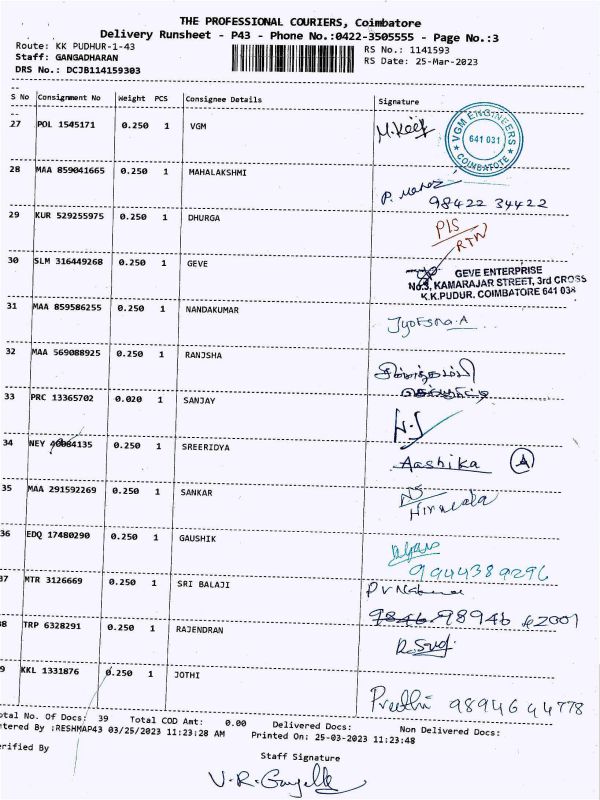 THE PROFESSIONAL COURIERS, Coimbatore
Delivery Runsheet - P43 - Phone No.:0422-3505555 - Page No.:3
Route: KK PUDHUR-1-43 RS No.: 1141593
Staff: GANGADHARAN RS Date: 25-Mar-2023
DRS No.: DCJB114159303
S No Consignment No Weight PCS Consignee Details Signature
27 POL 1545171 0.250 1 VGM
VGM ENGINEERS
641 031
COIMBATORE
28 MAA 859041665 0.250 1 MAHALAKSHMI
98422 34422
29 KUR 529255975 0.250 1 DHURGA
P/S
RTN
30 SLM 316449268 0.250 1 GEVE
GEVE ENTERPRISE
No.3, KAMARAJAR STREET, 3rd CROSS
K.K.PUDUR. COIMBATORE 641 038
31 MAA 859586255 0.250 1 NANDAKUMAR
Jyotsna.A
32 MAA 569088925 0.250 1 RANJSHA
33 PRC 13365702 0.020 1 SANJAY
34 NEY 0.250 1 SREERIDYA
Aashika A
35 MAA 291592269 0.250 1 SANKAR
Nirmala
36 EDQ 17480290 0.250 1 GAUSHIK
9944389296
37 MTR 3126669 0.250 1 SRI BALAJI
9846 98946 62001
38 TRP 6328291 0.250 1 RAJENDRAN
39 KKL 1331876 0.250 1 JOTHI
Preethi 98946 44778
Total No. Of Docs: 39 Total COD Amt: 0.00 Delivered Docs: Non Delivered Docs:
Entered By :RESHMAP43 03/25/2023 11:23:28 AM Printed On: 25-03-2023 11:23:48
Verified By
Staff Signature